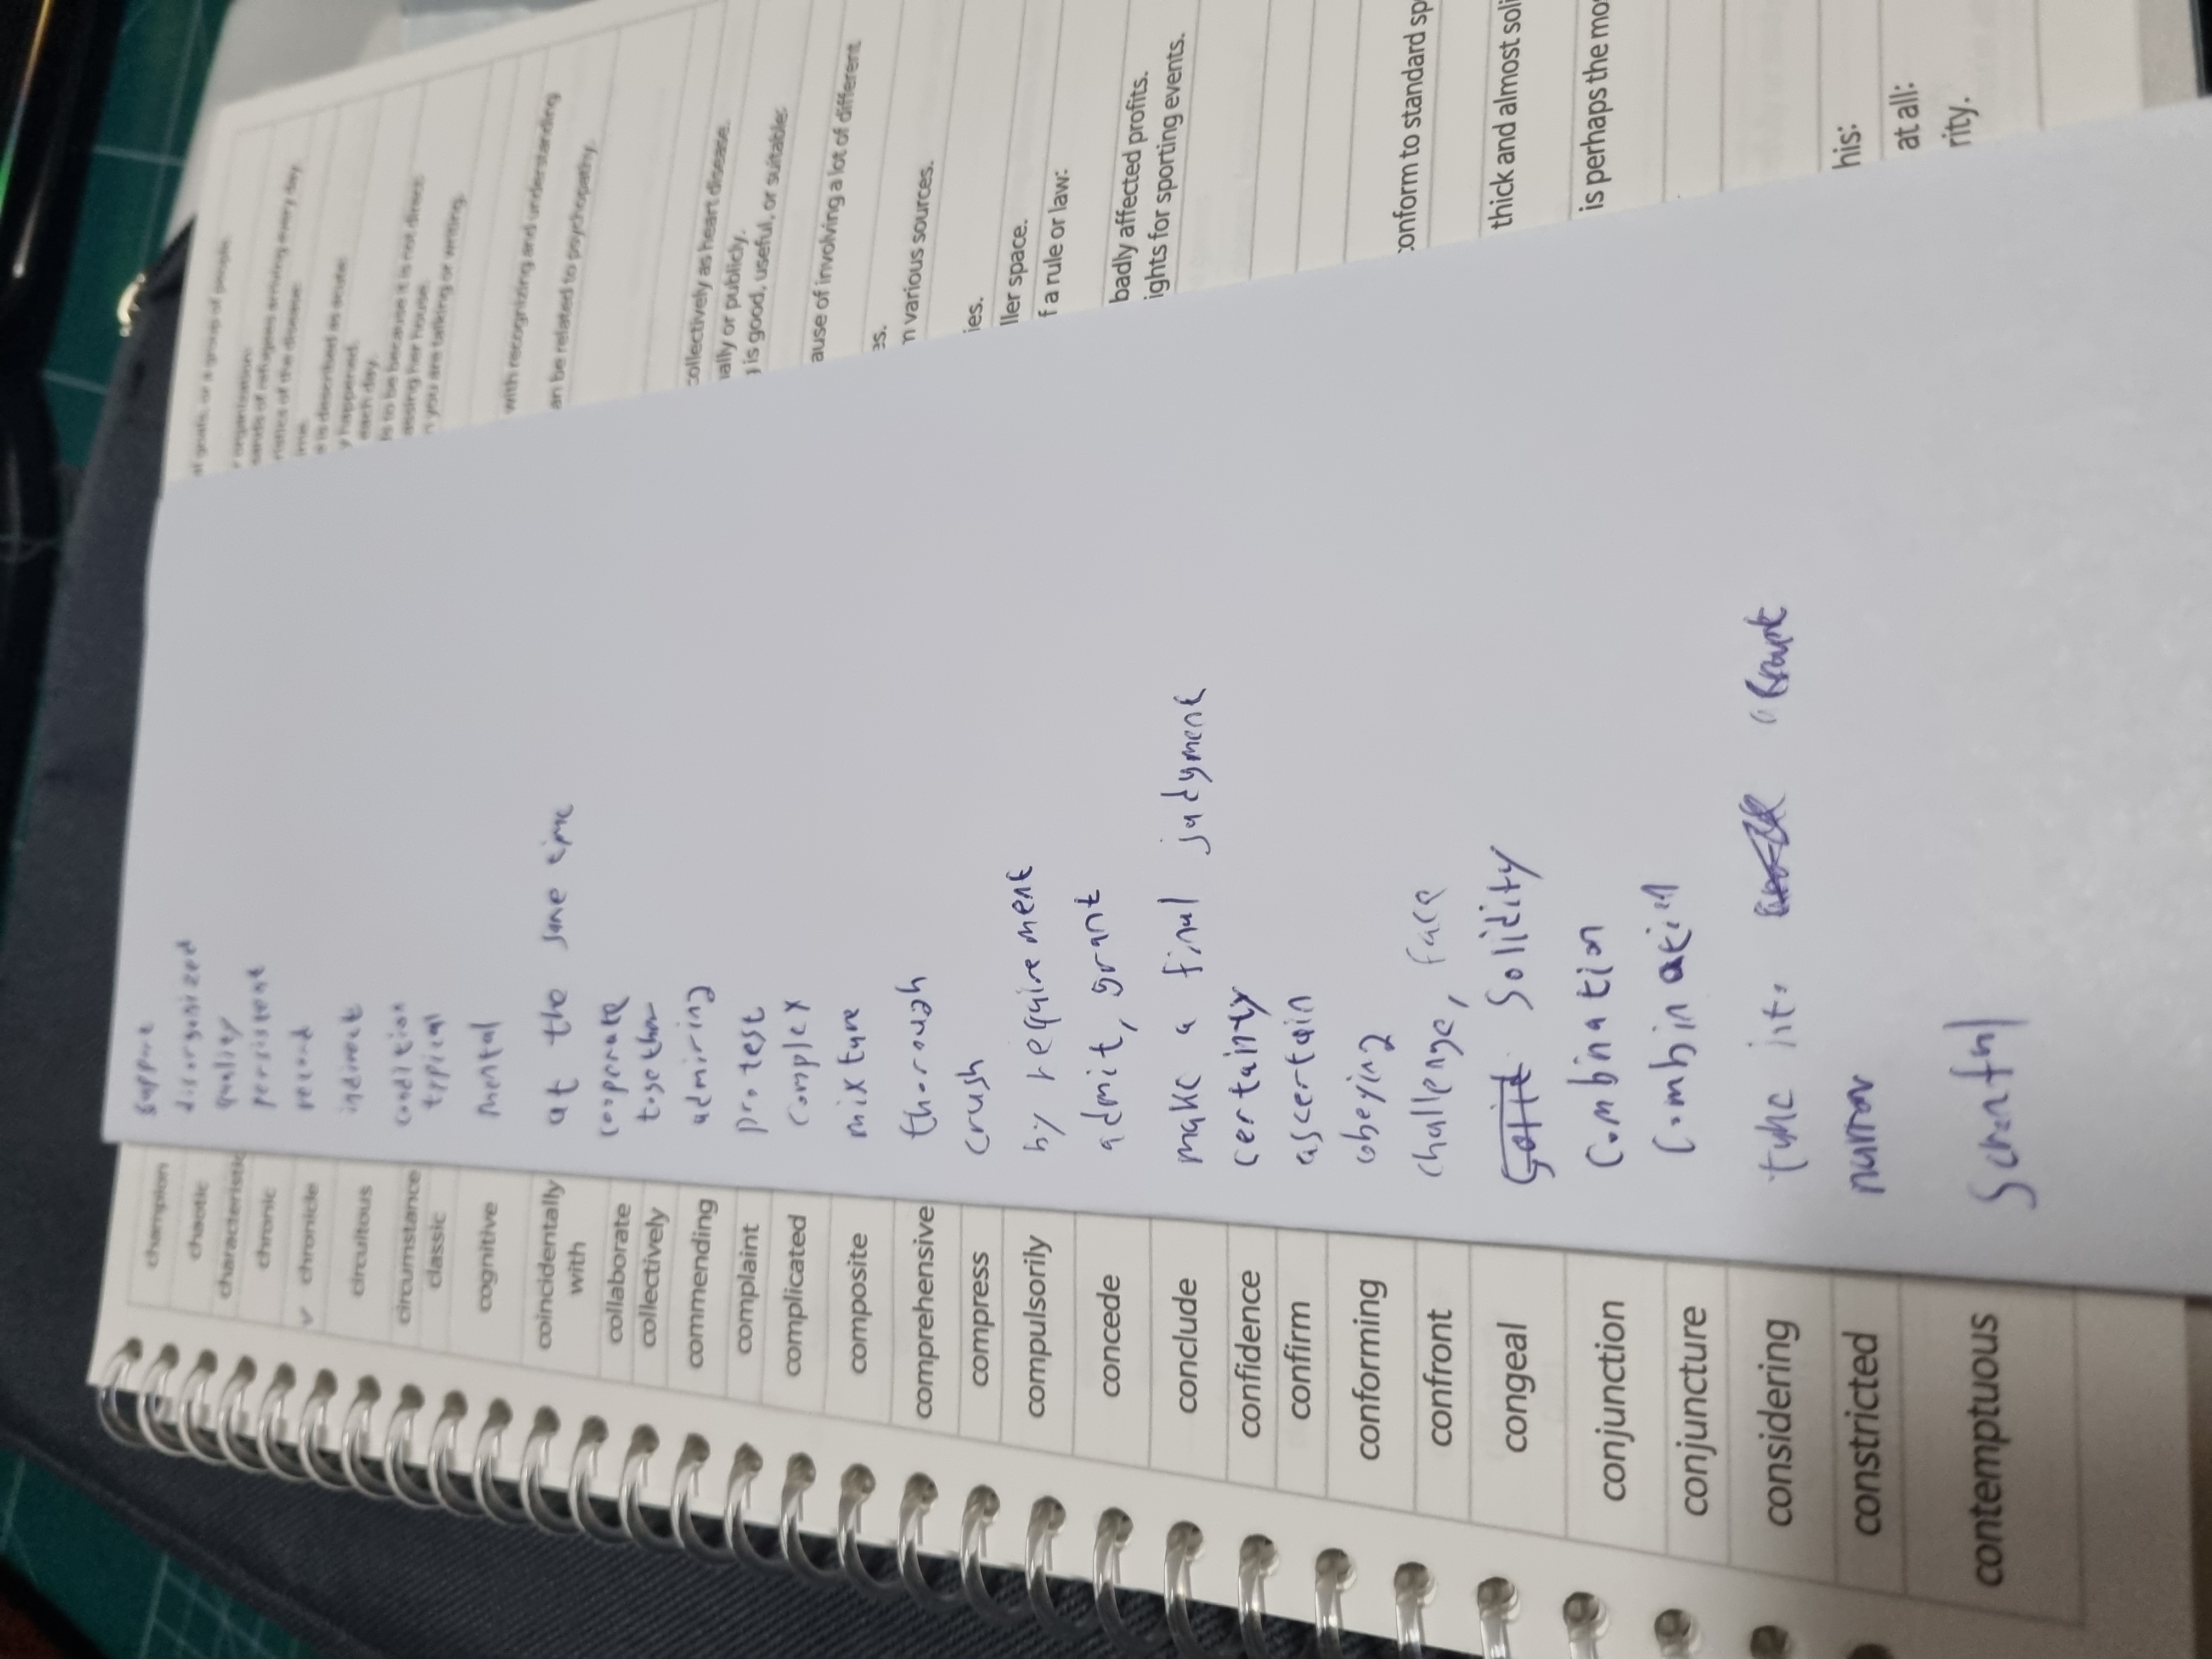 champion support
chaotic disorganized
characteristic quality
chronic persistent
✓ chronicle record
circuitous indirect
circumstance condition
classic typical
cognitive mental
coincidentally with at the same time
collaborate cooperate
collectively together
commending admiring
complaint protest
complicated complex
composite mixture
comprehensive thorough
compress crush
compulsorily by requirement
concede admit, grant
conclude make a final judgment
confidence certainty
confirm ascertain
conforming obeying
confront challenge, face
congeal solidity
conjunction combination
conjuncture combination
considering take into
constricted narrow
contemptuous
al goals, or a group of people
organization
sands of refugees arriving every day.
ristics of the disease.
ime.
is described as acute
y happened.
each day.
ls to be because it is not direct
assing her house.
you are talking or writing.
with recognizing and understanding
an be related to psychopathy.
collectively as heart disease.
ially or publicly.
is good, useful, or suitable:
ause of involving a lot of different
es.
n various sources.
ies.
ller space.
f a rule or law:
badly affected profits.
ights for sporting events.
conform to standard sp
thick and almost soli
is perhaps the mo
his:
at all:
rity.